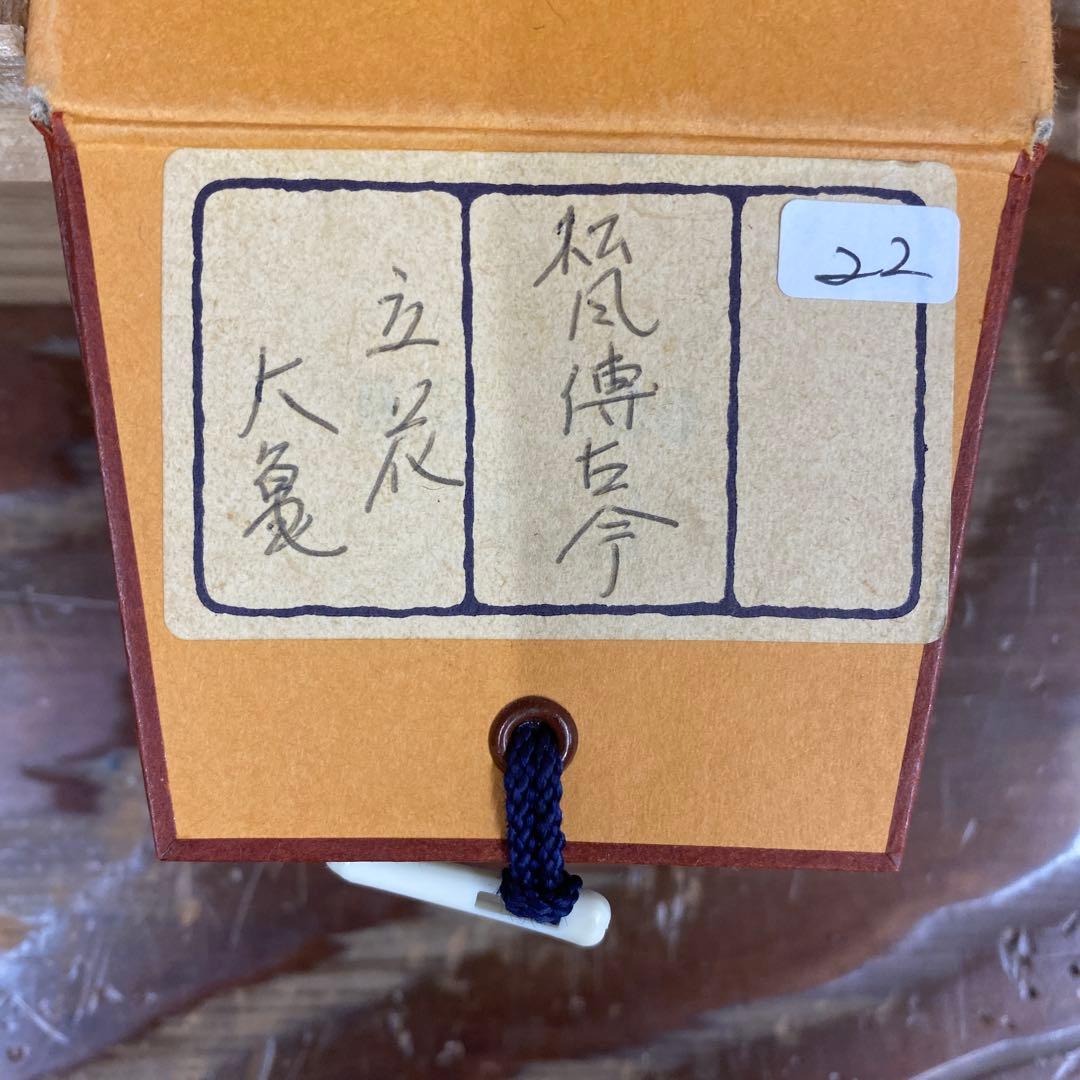 22
松風傳古今
立花
大亀